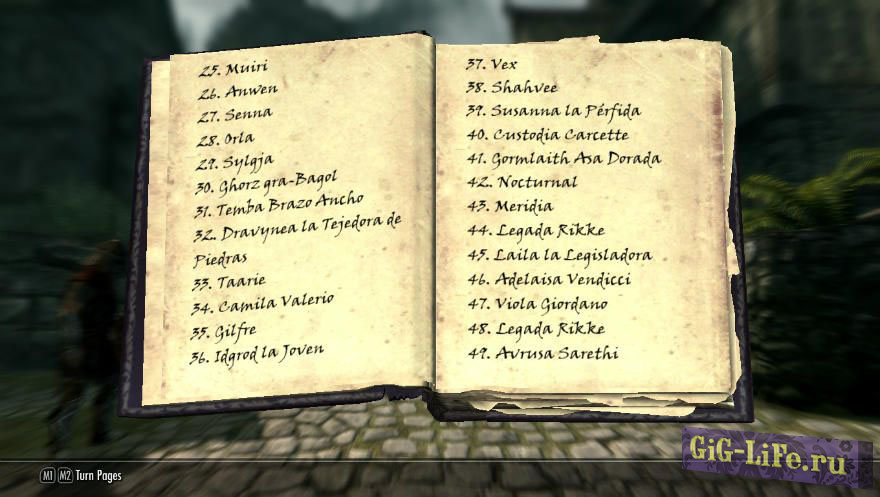 25. Muiri
26. Anwen
27. Senna
28. Orla
29. Sylgja
30. Ghorz gra-Bagol
31. Temba Brazo Ancho
32. Dravynea la Tejedora de
Piedras
33. Taarie
34. Camila Valerio
35. Gilfre
36. Idgrod la Joven
37. Vex
38. Shahvee
39. Susanna la Pérfida
40. Custodia Carcette
41. Gormlaith Asa Dorada
42. Nocturnal
43. Meridia
44. Legada Rikke
45. Laila la Legisladora
46. Adelaisa Vendicci
47. Viola Giordano
48. Legada Rikke
49. Avrusa Sarethi
M1 M2 Turn Pages
GiG-LiFe.ru